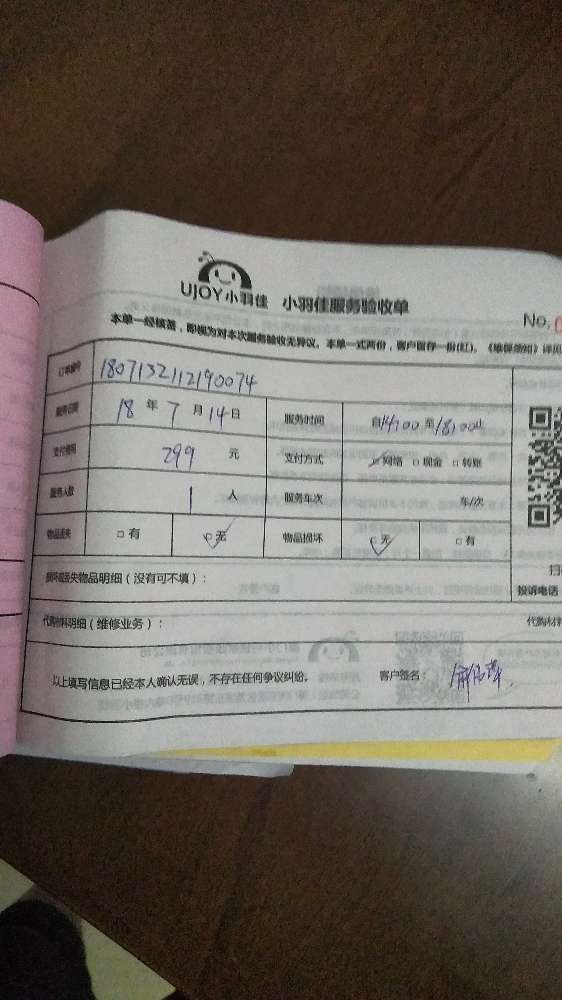 UJOY小羽佳 小羽佳服务验收单
No.0
本单一经核签，即视为对本次服务验收无异议。本单一式两份，客户留存一份(红)。《维保须知》详见
订单编号 1807132112190074
服务日期 18 年 7 月 14 日 服务时间 自14:00 至 18:00止
支付费用 299 元 支付方式 ☑网络 □现金 □转账
服务人数 1 人 服务车次 车/次
物品丢失 □有 ☑无 物品损坏 ☑无 □有
损坏或丢失物品明细（没有可不填）：
扫
投诉电话
代购材料明细（维修业务）：
代购材料
以上填写信息已经本人确认无误，不存在任何争议纠纷。 客户签名：